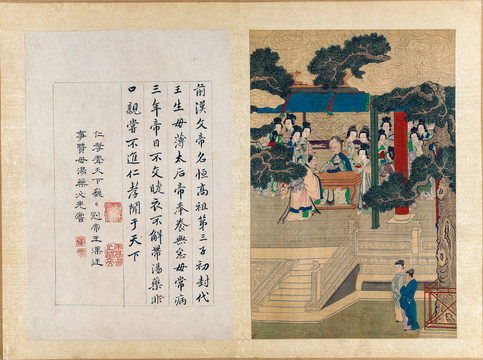 前漢文帝名恒高祖第三子初封代
王生母薄太后帝奉養無怠母常病
三年帝目不交睫衣不解帶湯藥非
口親嘗不進仁孝聞于天下
仁孝臨天下巍巍冠帝王漢廷
事賢母湯藥必先嘗